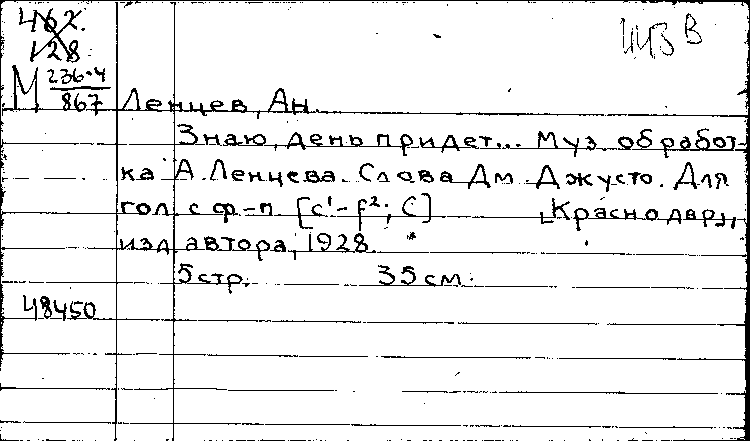 462.
128.
М 236-4
867
Ленцев, Ан.
Знаю, день придет... Муз. обработ-
ка А. Ленцева. Слова Дм. Джусто. Для
гол. с ф-п. [c¹-f²; C] [Краснодар],
изд автора, 1928. *
5 стр. 35 см.
48450